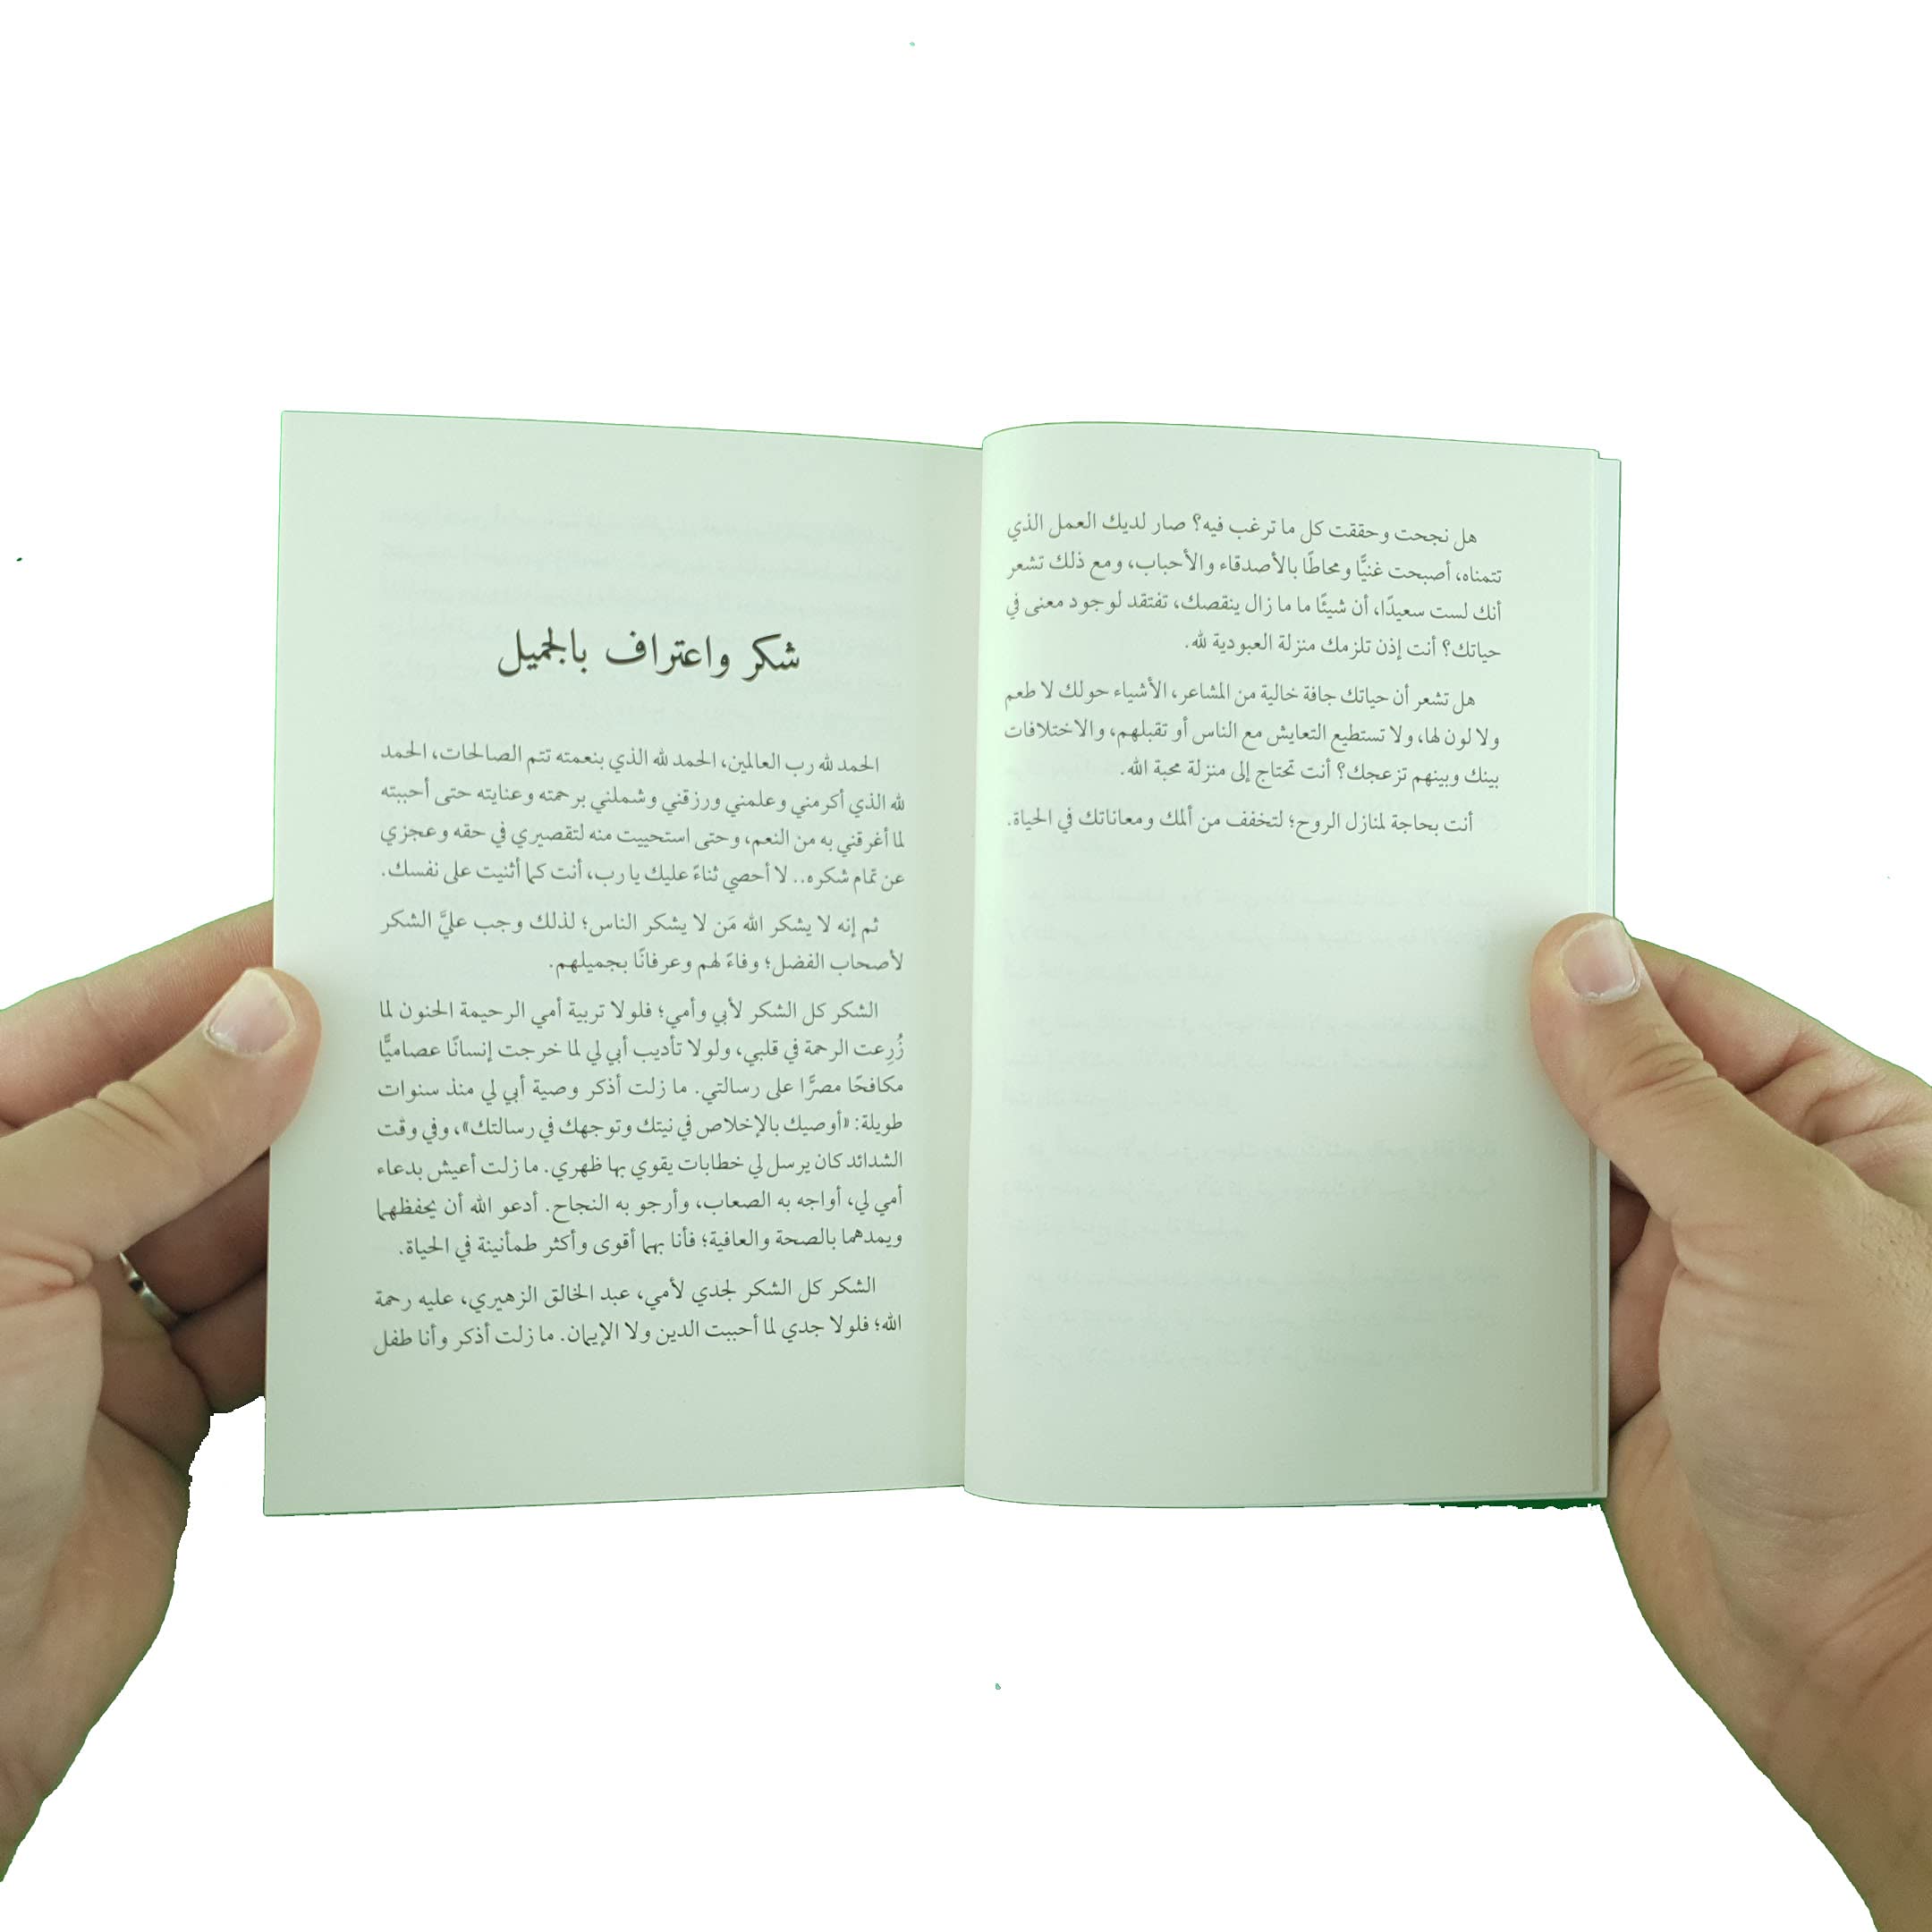 هل نجحت وحققت كل ما ترغب فيه؟ صار لديك العمل الذي
تتمناه، أصبحت غنيًّا ومحاطًا بالأصدقاء والأحباب، ومع ذلك تشعر
أنك لست سعيدًا، أن شيئًا ما ما زال ينقصك، تفتقد لوجود معنى في
حياتك؟ أنت إذن تلزمك منزلة العبودية لله.
هل تشعر أن حياتك جافة خالية من المشاعر، الأشياء حولك لا طعم
ولا لون لها، ولا تستطيع التعايش مع الناس أو تقبلهم، والاختلافات
بينك وبينهم تزعجك؟ أنت تحتاج إلى منزلة محبة الله.
أنت بحاجة لمنازل الروح؛ لتخفف من ألمك ومعاناتك في الحياة.
شكر واعتراف بالجميل
الحمد لله رب العالمين، الحمد لله الذي بنعمته تتم الصالحات، الحمد
لله الذي أكرمني وعلمني ورزقني وشملني برحمته وعنايته حتى أحببته
لما أغرقني به من النعم، وحتى استحييت منه لتقصيري في حقه وعجزي
عن تمام شكره.. لا أحصي ثناءً عليك يا رب، أنت كما أثنيت على نفسك.
ثم إنه لا يشكر الله مَن لا يشكر الناس؛ لذلك وجب عليَّ الشكر
لأصحاب الفضل؛ وفاءً لهم وعرفانًا بجميلهم.
الشكر كل الشكر لأبي وأمي؛ فلولا تربية أمي الرحيمة الحنون لما
زُرِعت الرحمة في قلبي، ولولا تأديب أبي لي لما خرجت إنسانًا عصاميًّا
مكافحًا مصرًّا على رسالتي. ما زلت أذكر وصية أبي لي منذ سنوات
طويلة: «أوصيك بالإخلاص في نيتك وتوجهك في رسالتك»، وفي وقت
الشدائد كان يرسل لي خطابات يقوي بها ظهري. ما زلت أعيش بدعاء
أمي لي، أواجه به الصعاب، وأرجو به النجاح. أدعو الله أن يحفظهما
ويمدهما بالصحة والعافية؛ فأنا بهما أقوى وأكثر طمأنينة في الحياة.
الشكر كل الشكر لجدي لأمي، عبد الخالق الزهيري، عليه رحمة
الله؛ فلولا جدي لما أحببت الدين ولا الإيمان. ما زلت أذكر وأنا طفل